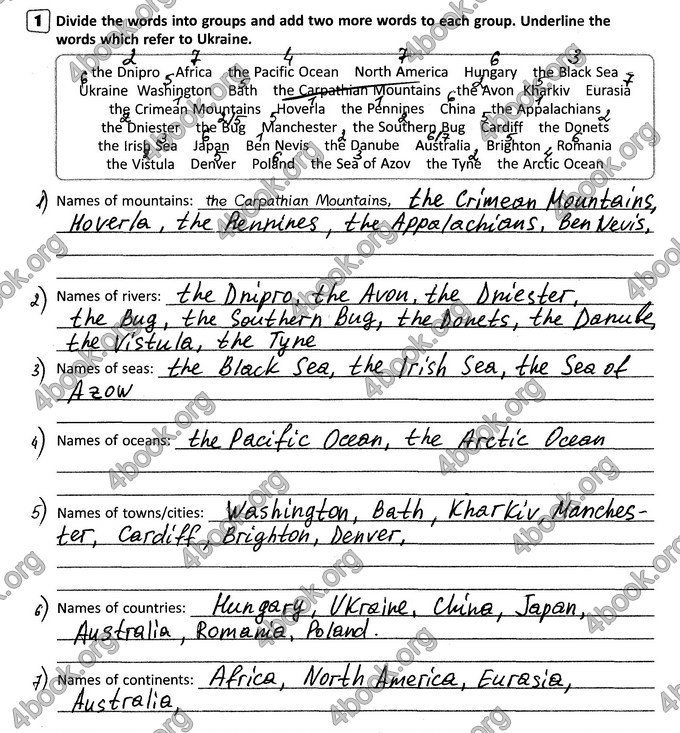 1 Divide the words into groups and add two more words to each group. Underline the
words which refer to Ukraine.
2 7 4 7 6 3
the Dnipro Africa the Pacific Ocean North America Hungary the Black Sea
Ukraine Washington Bath the Carpathian Mountains the Avon Kharkiv Eurasia
the Crimean Mountains Hoverla the Pennines China the Appalachians
the Dniester the Bug Manchester the Southern Bug Cardiff the Donets
the Irish Sea Japan Ben Nevis the Danube Australia Brighton Romania
the Vistula Denver Poland the Sea of Azov the Tyne the Arctic Ocean
1) Names of mountains: the Carpathian Mountains, the Crimean Mountains,
Hoverla, the Pennines, the Appalachians, Ben Nevis,
2) Names of rivers: the Dnipro, the Avon, the Dniester,
the Bug, the Southern Bug, the Donets, the Danube,
the Vistula, the Tyne
3) Names of seas: the Black Sea, the Irish Sea, the Sea of
Azow
4) Names of oceans: the Pacific Ocean, the Arctic Ocean
5) Names of towns/cities: Washington, Bath, Kharkiv, Manches-
ter, Cardiff, Brighton, Denver,
6) Names of countries: Hungary, Ukraine, China, Japan,
Australia, Romania, Poland.
7) Names of continents: Africa, North America, Eurasia,
Australia,
4book.org